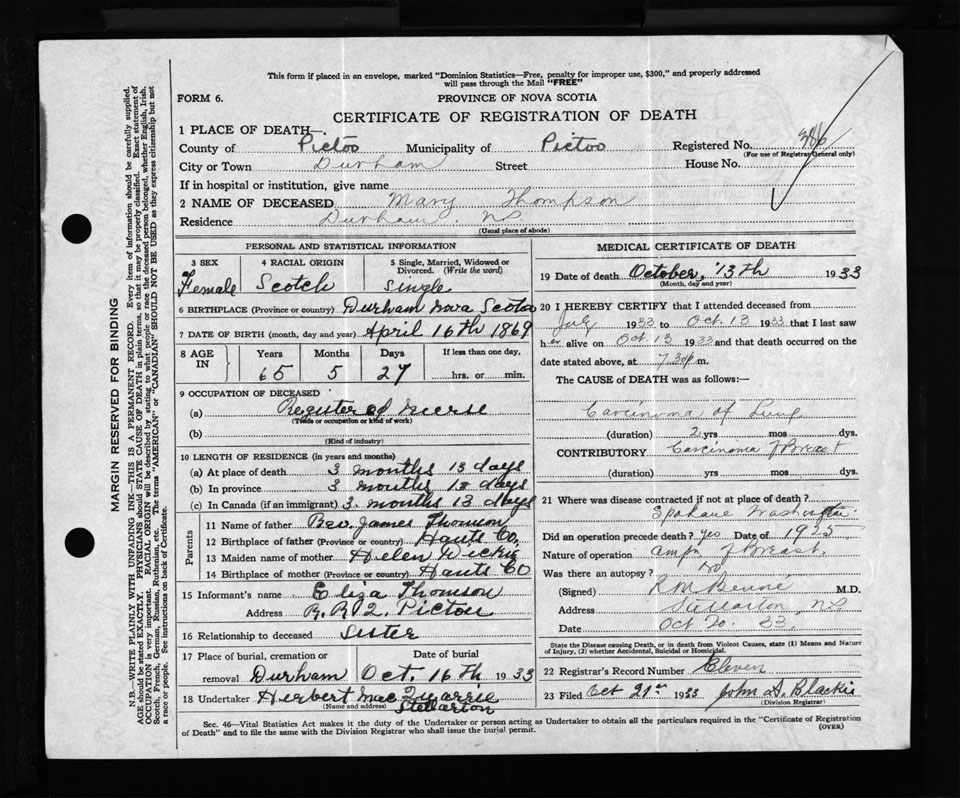 This form if placed in an envelope, marked "Dominion Statistics—Free, penalty for improper use, $300," and properly addressed
will pass through the Mail "FREE"
FORM 6.
PROVINCE OF NOVA SCOTIA
CERTIFICATE OF REGISTRATION OF DEATH
1 PLACE OF DEATH—
County of Pictoo Municipality of Pictoo Registered No. 286
(For use of Registrar General only)
City or Town Durham Street House No.
If in hospital or institution, give name
2 NAME OF DECEASED Mary Thompson
Residence Durham. NS
(Usual place of abode)
PERSONAL AND STATISTICAL INFORMATION
3 SEX 4 RACIAL ORIGIN 5 Single, Married, Widowed or
Divorced. (Write the word)
Female Scotch Single
6 BIRTHPLACE (Province or country) Durham Nova Scotia
7 DATE OF BIRTH (month, day and year) April 16th 1869
8 AGE IN Years Months Days If less than one day,
65 5 27 hrs. or min.
9 OCCUPATION OF DECEASED
(a) Registered Nurse
(Trade or occupation or kind of work)
(b)
(Kind of industry)
10 LENGTH OF RESIDENCE (in years and months)
(a) At place of death 3 months 13 days
(b) In province 3 months 13 days
(c) In Canada (if an immigrant) 3. months 13 days
Parents
11 Name of father Rev. James Thomson
12 Birthplace of father (Province or country) Hants Co,
13 Maiden name of mother Helen
14 Birthplace of mother (Province or country) Hants Co
15 Informant's name Eliza Thomson
Address R.R 2. Pictou
16 Relationship to deceased Sister
17 Place of burial, cremation or Date of burial
removal Durham Oct. 16th 1933
18 Undertaker Herbert MacQuarrie
(Name and address) Stellarton
MEDICAL CERTIFICATE OF DEATH
19 Date of death October, 13th 1933
(Month, day and year)
20 I HEREBY CERTIFY that I attended deceased from
July 1933 to Oct. 13 1933 that I last saw
her alive on Oct 13 1933 and that death occurred on the
date stated above, at 7.30 p m.
The CAUSE OF DEATH was as follows:—
Carcinoma of Lung
(duration) 2 yrs mos dys.
CONTRIBUTORY Carcinoma of Breast
(duration) yrs mos dys.
21 Where was disease contracted if not at place of death?
Spokane Washington
Did an operation precede death? Yes Date of 1925
Nature of operation Ampn of Breast.
Was there an autopsy? No
(Signed) M.D.
Address Stellarton, NS
Date Oct 20. 33.
State the Disease causing Death, or in death from Violent Causes, state (1) Means and Nature
of Injury, (2) whether Accidental, Suicidal or Homicidal.
22 Registrar's Record Number Eleven
23 Filed Oct 21st 1933 John D. Blackie
(Division Registrar)
Sec. 46—Vital Statistics Act makes it the duty of the Undertaker or person acting as Undertaker to obtain all the particulars required in the "Certificate of Registration
of Death" and to file the same with the Division Registrar who shall issue the burial permit.
(OVER)
MARGIN RESERVED FOR BINDING
N.B.—WRITE PLAINLY WITH UNFADING INK—THIS IS A PERMANENT RECORD. Every item of information should be carefully supplied.
AGE should be stated EXACTLY. PHYSICIANS should STATE CAUSE OF DEATH in plain terms, so that it may be properly classified. Exact statement of
OCCUPATION is very important. RACIAL ORIGIN will be described by stating to what people or race the deceased person belonged, whether English, Irish,
Scotch, French, German, Russian, Ruthenian, etc. The terms "AMERICAN" or "CANADIAN" SHOULD NOT BE USED as they express citizenship but not
a race or people. See instructions on back of Certificate.